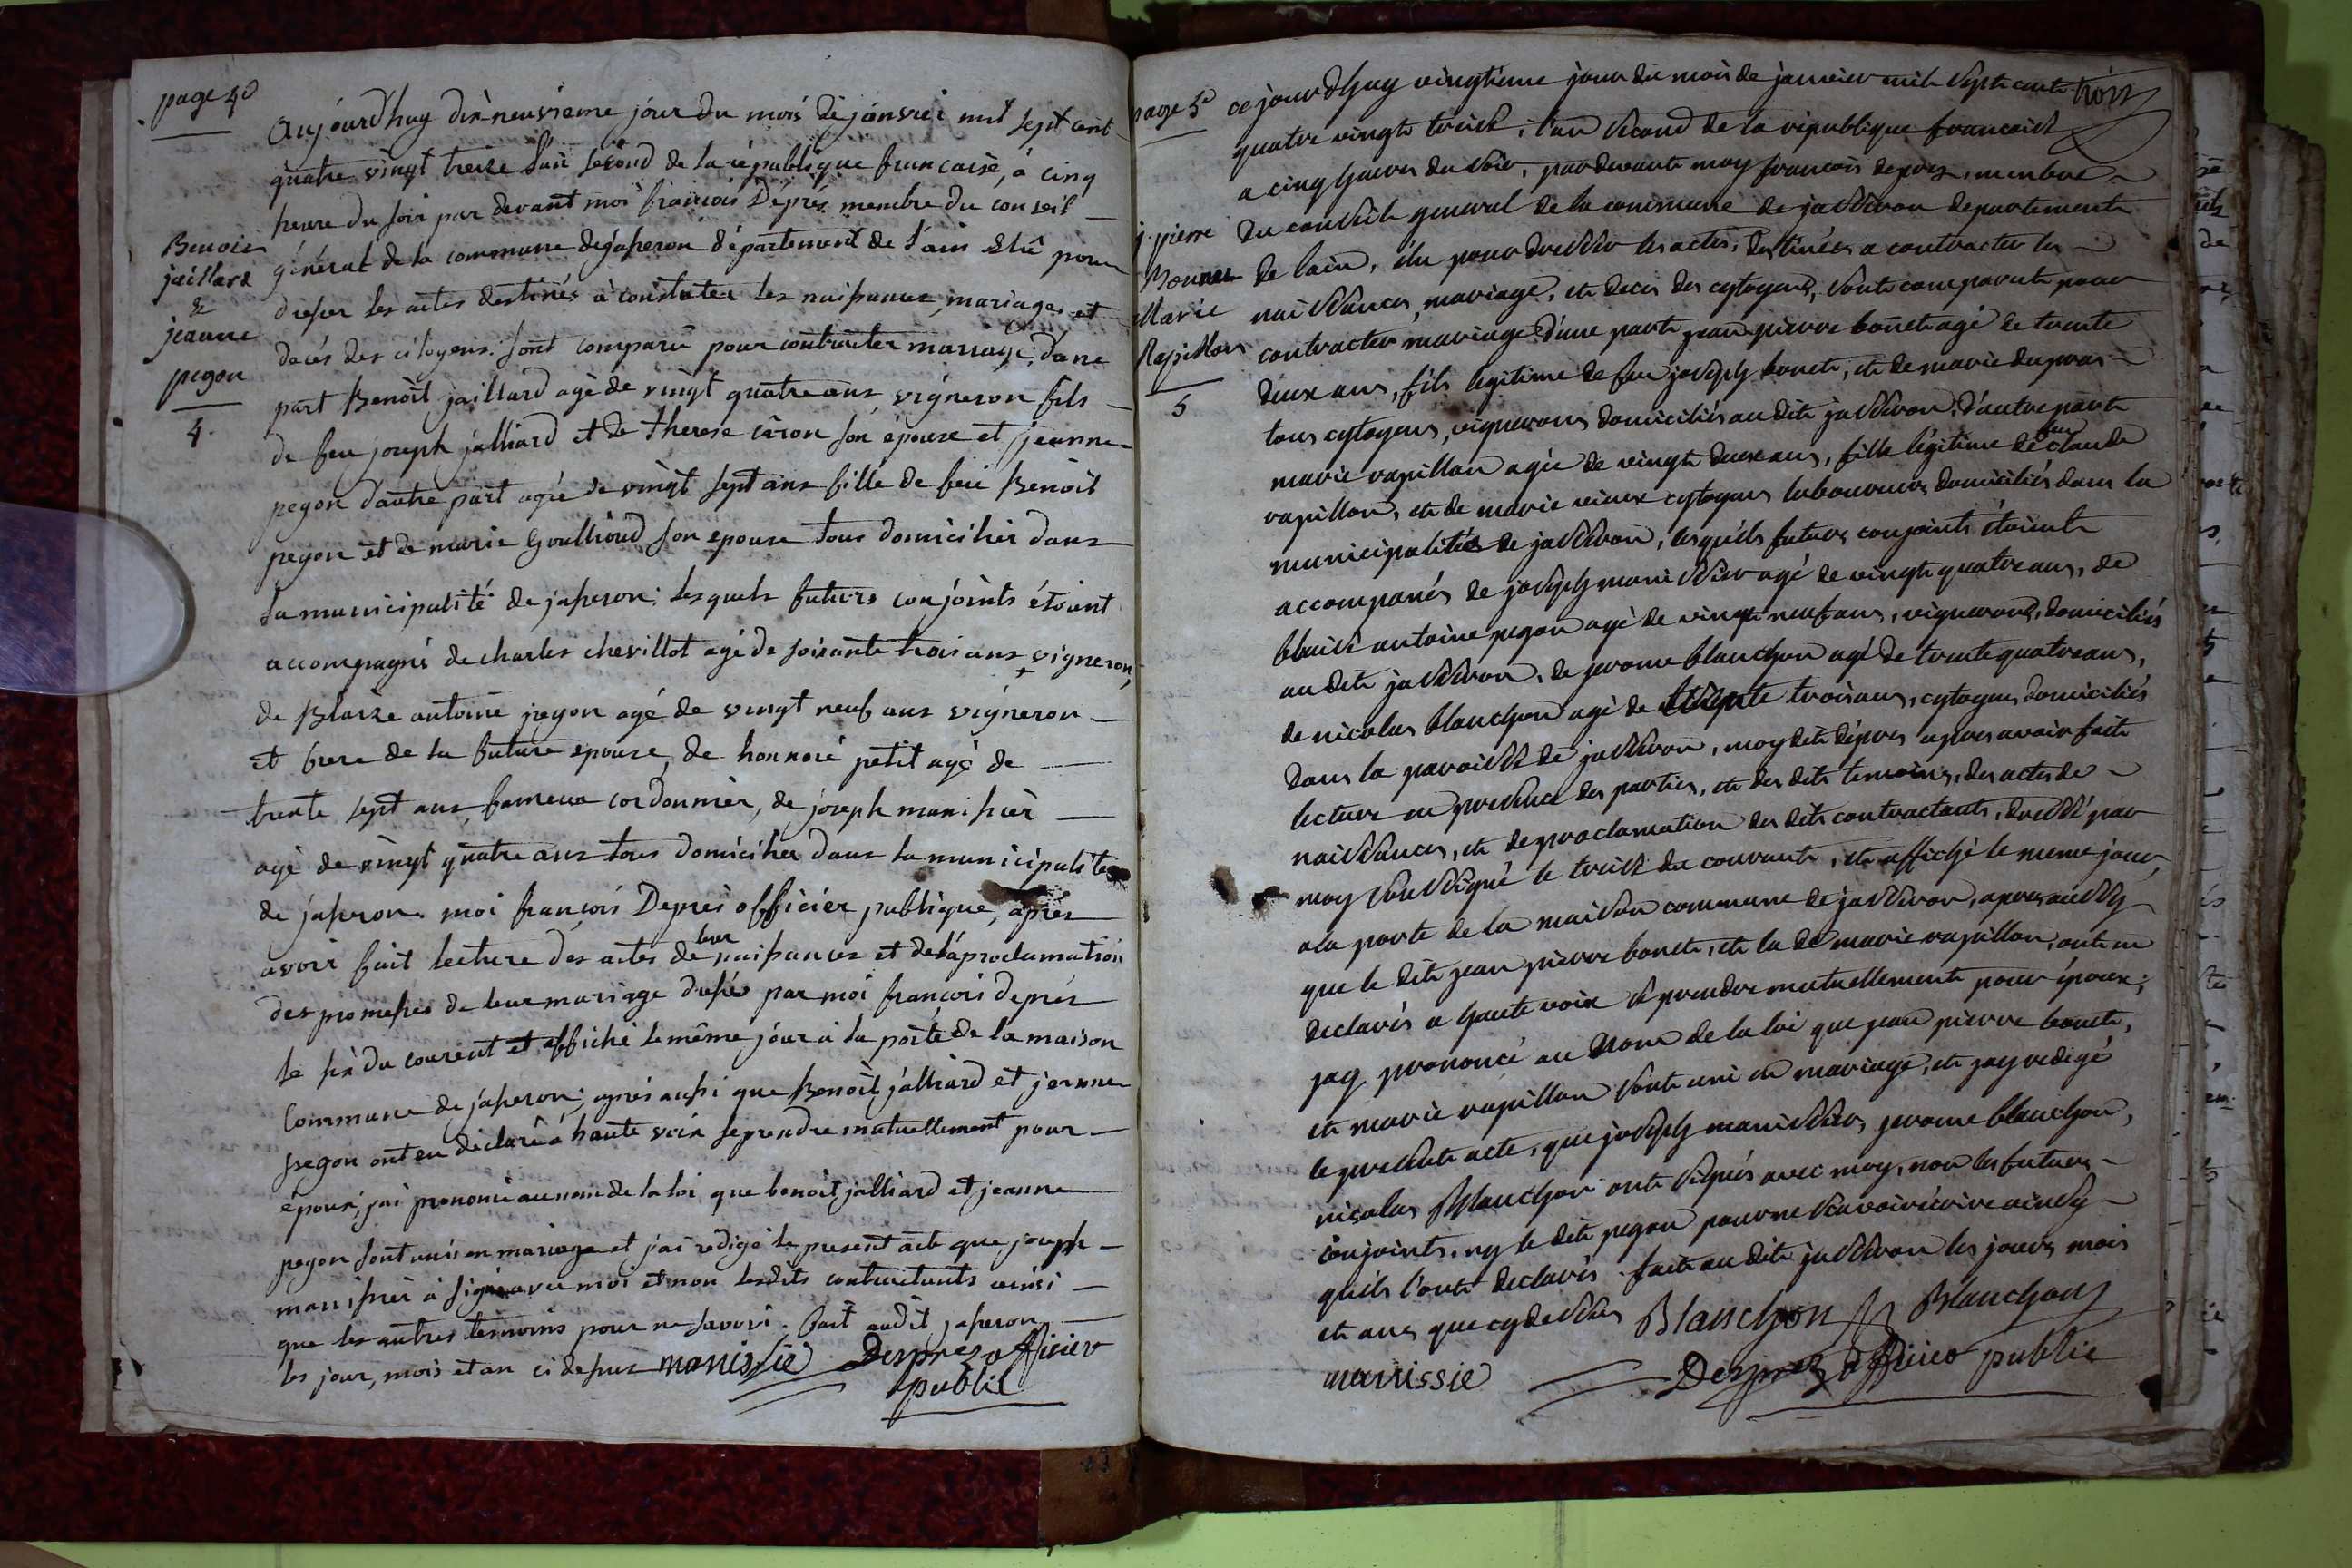 page 4e
Aujourd'huy dix neuvieme jour du mois de janvier mil sept cent
quatre vingt treize l'an second de la république francaise, à cinq
heure du soir par devant moi francois Deprés membre du conseil
général de la commune de jasseron département de l'ain élû pour
dresser les actes destinés à constater les naissances, mariages et
décés des citoyens. sont comparu pour contracter mariage, d'une
part Benoît jaillard agé de vingt quatre ans vigneron fils
de feu joseph jalliard et de therese son epouse et jeanne
pegon d'autre part agée de vingt sept ans fille de feu Benoit
pegon et de marie Goullioud son epouse tous domiciliés dans
la municipalité de jasseron; lesquels futurs conjoints étoient
accompagné de charles chevillot agé de soixante trois ans vigneron,
de Blaize antoine pegon agé de vingt neuf ans vigneron
et frere de la future epouse, de honnoré petit agé de
trente sept ans cordonnier, de joseph manissier
agé de vingt quatre ans tous domiciliés dans la municipalité
de jasseron. moi françois Deprés officier publique, après
avoir fait lecture des actes de leur naissances et de la proclamation
des promesses de leur mariage dressé par moi françois deprés
le six du courent et affiché le même jour à la porte de la maison
Commune de jasseron; après aussi que Benoît jalliard et jeanne
pegon ont eu déclaré à haute voix se prendre mutuellement pour
époux; j'ai prononcé au nom de la loi que benoit jalliard et jeanne
pegon sont unis en mariage et j'ai redigé le present acte que joseph
manissier à signé avec moi et non lesdits contractants ainsi
que les autres temoins pour ne savoir. fait audit jasseron
les jour, mois et an ci dessus manissie Desprez officier
public
Benoit
jaillard
&
jeanne
pegon
4.
page 5e
ce jourdhuy vingtieme jour du mois de janvier mil sept cents trois
quatre vingt treise, l'an second de la république francaise
a cinq heures du soir, pardevant moy francois deprez, membre
du conseil general de la commune de jasseron departement
de lain, élu pour dresser les actes, destinées a contracter les
naissances, mariage, et deces des cytoyens, sont comparut pour
contracter mariage d'une part jean pierre bonet agé de trente
deux ans, fils legitime de feu joseph bonet, et de marie dupras
tous cytoyens, vignerons domiciliés au dit jasseron, d'autre part
marie rapillon agée de vingt deux ans, fille légitime de feu claude
rapillon, et de marie cytoyens laboureurs domiciliés dans la
municipalité de jasseron, lesquels futurs conjoints étoient
accompanés de joseph manissier agé de vingt quatre ans, de
blaise antoine pegon agé de vingt neuf ans, vignerons, domiciliés
au dit jasseron, de jerome blanchon agé de trente quatre ans,
de nicolas blanchon agé de trente trois ans, cytoyens domiciliés
dans la paroisse de jasseron, moy dit dépres apres avoir fait
lecture en presence des parties, et des dits temoins, des actes de
naissances, et de proclamation des dits contractants, dressé par
moy soussigné le treise du courant, et affiché le meme jour
a la porte de la maison commune de jasseron, apres aussy
que le dit jean pierre bonet, et la de marie rapillon, ont eu
declarés a haute voix se prendre mutuellement pour époux;
jay prononcé au nom de la loi que jean pierre bonet,
et marie rapillon sont uni en mariage, et jay redigé
le present acte, que joseph manissier, jerome blanchon,
nicolas Blanchon ont signés avec moy, non les futurs
conjoints, ny le dit pegon pour ne scavoir écrire ainsy
quils l'ont declarés. fait au dit jasseron les jours, mois
et ans que cy dessus Blanchon Blanchon
manissie Desprez officier public
j. pierre
Bonnet
Marie
Rapillon
5